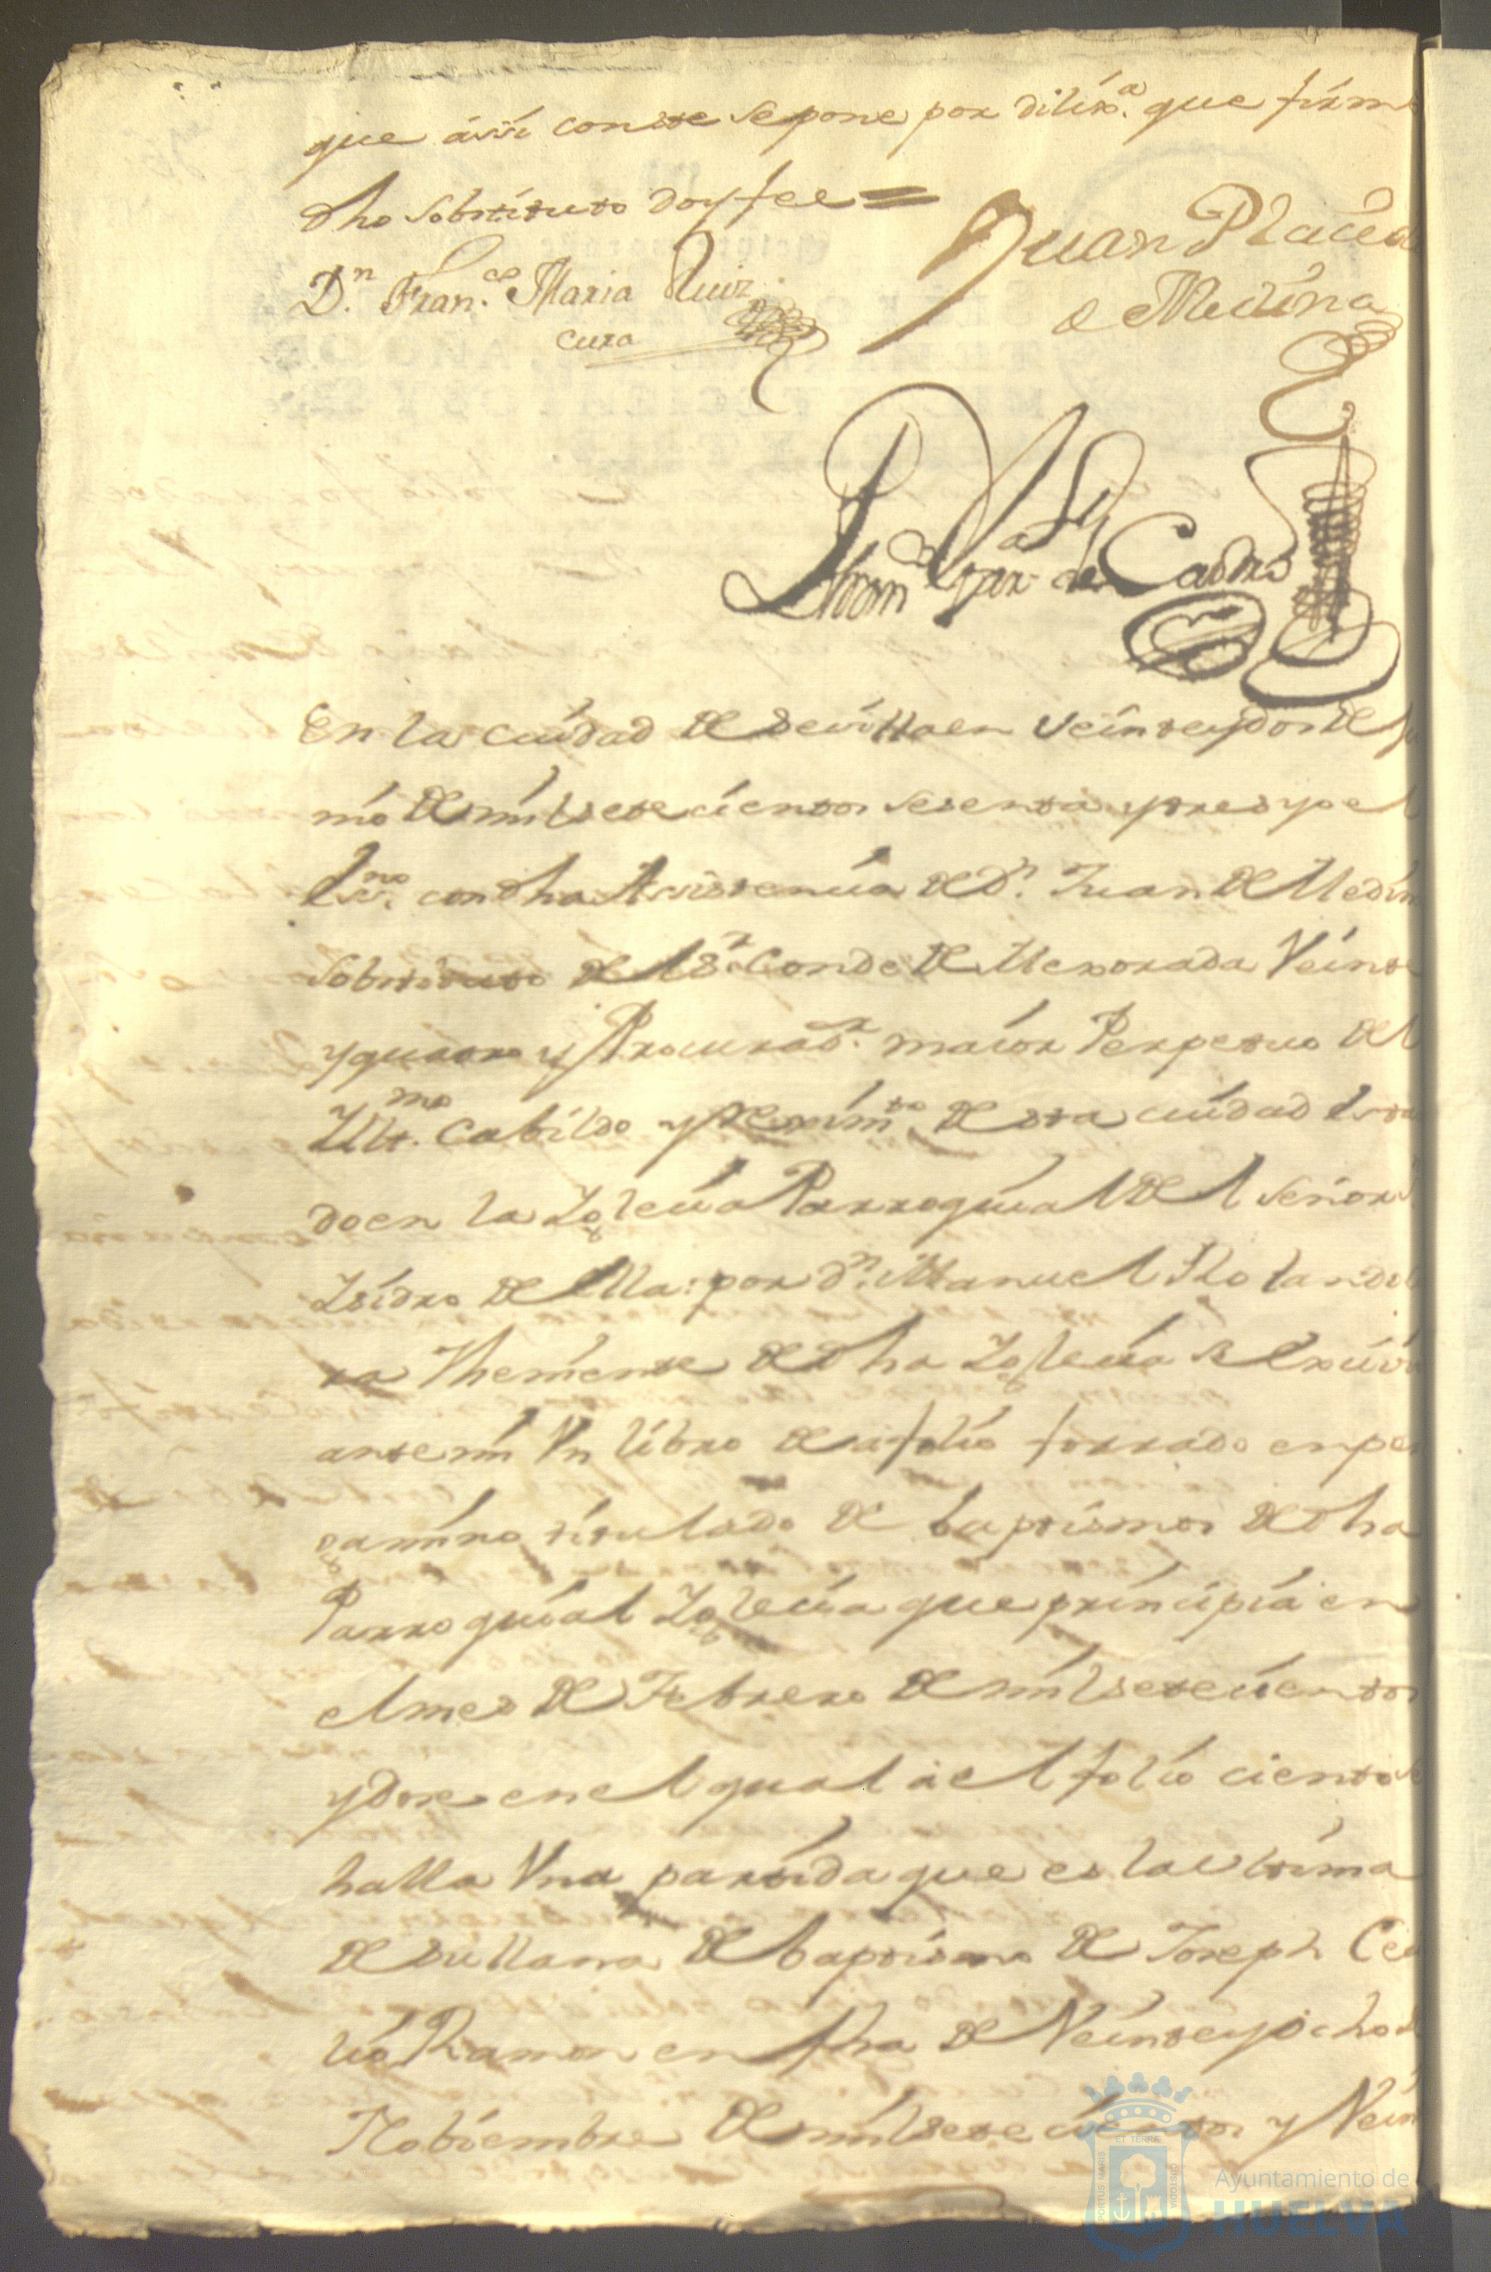 que assi conste se pone por dilixª. que firm
dho sobstituto doy fee =
Dn. Franco. Maria Ruiz
cura
Juan Placid
de Medina
de Castro
En la ciudad de Sevilla en veinte y dos de
mo de mil setecientos sesenta y tres yo el
Essno. con dha Assistencia de Dn. Juan de Medin
sobstituto del Sr. Conde de Mexorada Veint
y quatro y Procuradr. maior Perpetuo del
Illmo. Cabildo y Reximto. de esta ciudad esta
do en la Iglecia Parroquial del Señor
Isidro de ella: por dn. Manuel Rolandi
ra Theniente de dha Iglecia se exivi
ante mi Un libro de a folio forrado en per
gamino titulado de baptismos de dha
Parroquial Iglecia que principia en
el mes de Febrero de mil setecientos
y dore en el qual a el folio ciento
halla Una partida que es la ultima
de su llana de baptismo de Joseph Ce
lio Ramon en fha de Veinte y ocho d
Nobiembre de mil setecientos y Vein
PORTUS MARIS ET TERRÆ CUSTODIA
Ayuntamiento de
HUELVA